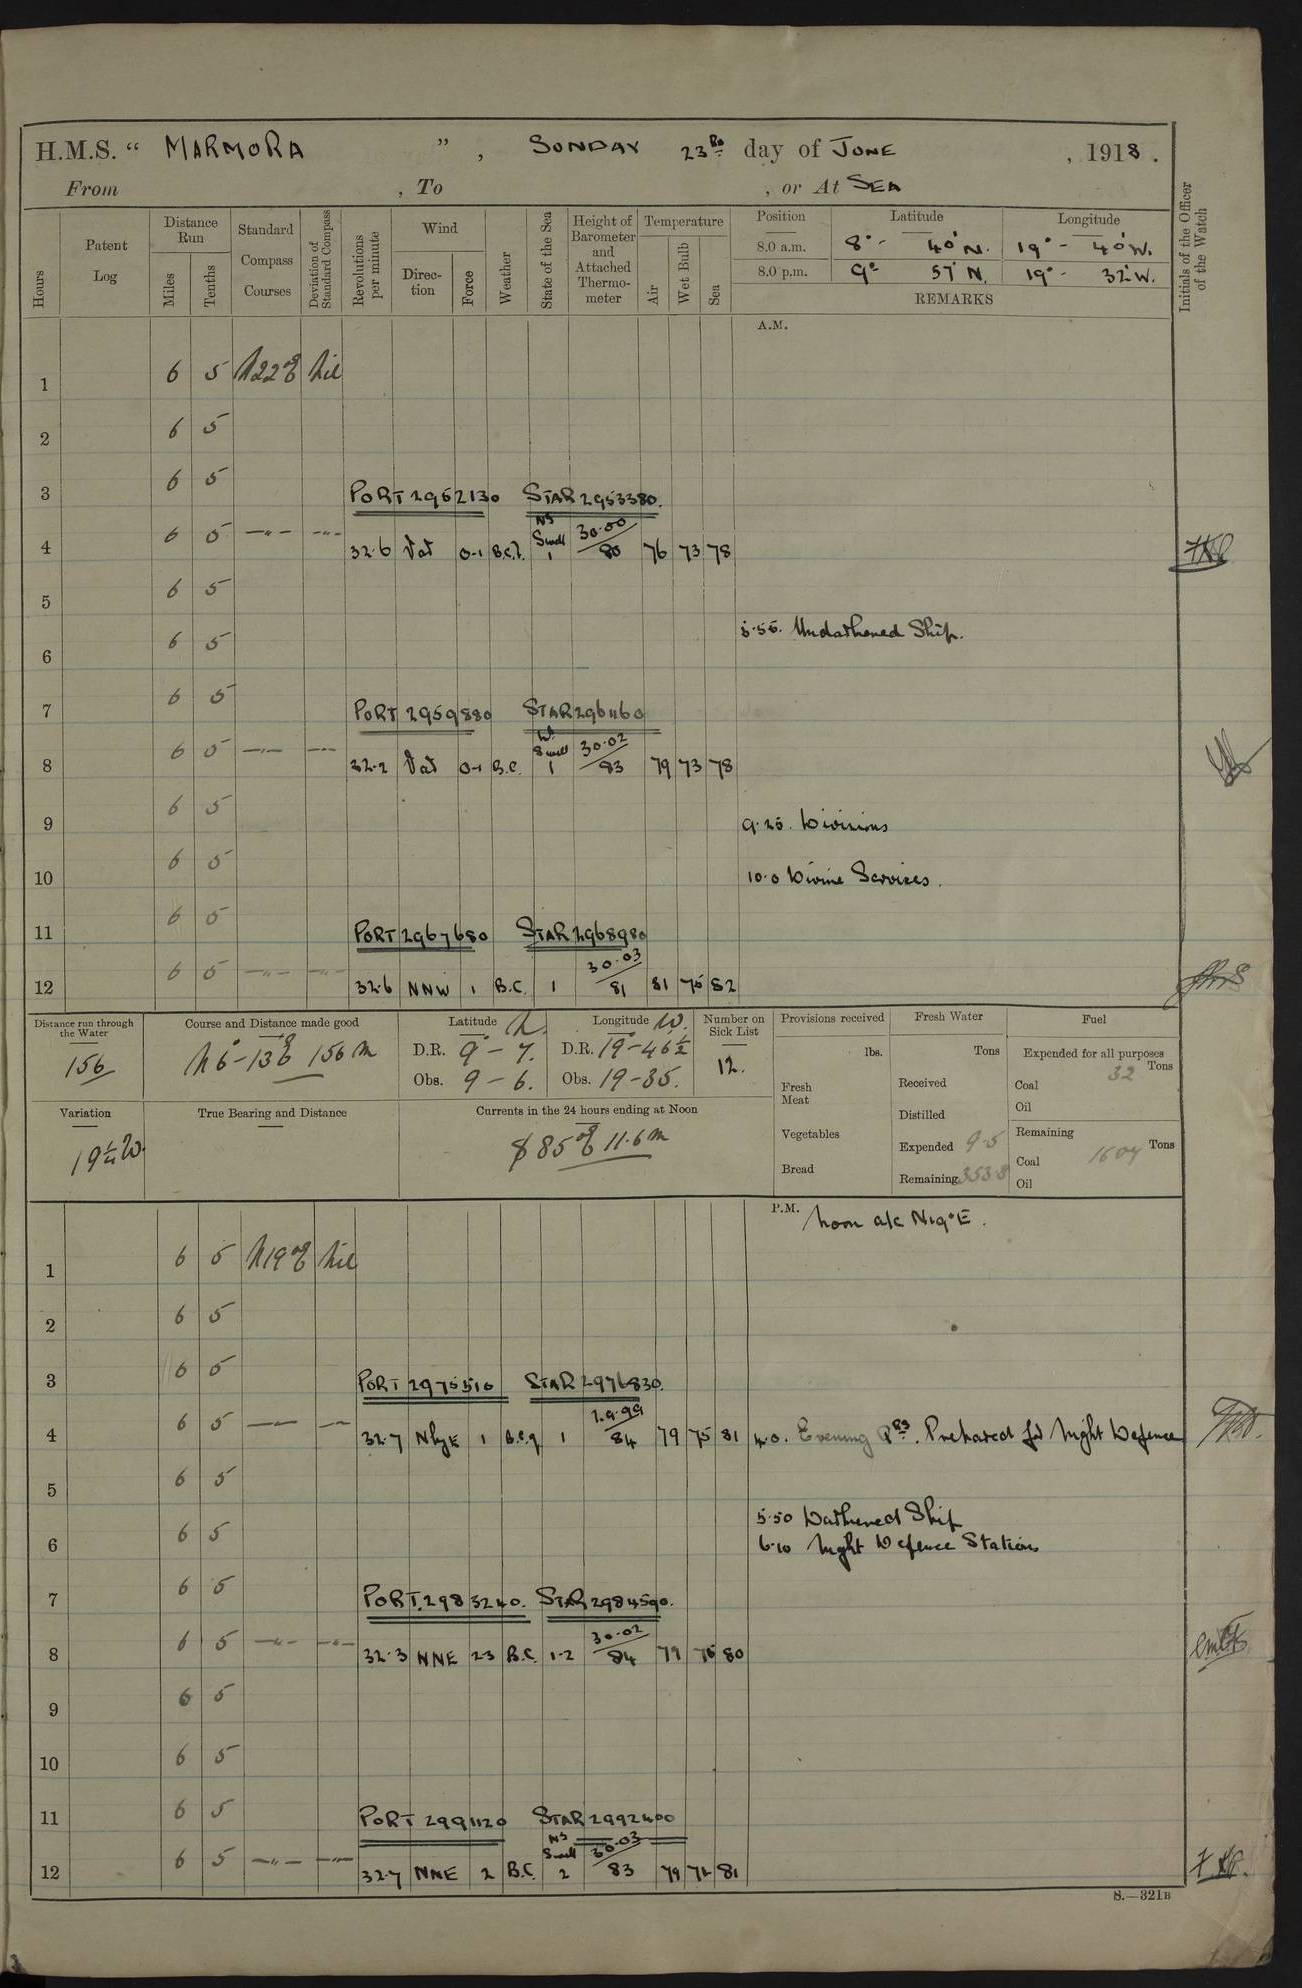 H.M.S. “ MARMORA ” , SUNDAY 23RD day of JUNE , 1918 .
From , To , or At SEA
Hours Patent Log Distance Run Miles Tenths Standard Compass Courses Deviation of Standard Compass Revolutions per minute Wind Direction Force Weather State of the Sea Height of Barometer and Attached Thermometer Temperature Air Wet Bulb Sea Position Latitude Longitude Initials of the Officer of the Watch
8.0 a.m. 8° - 40' N. 19° - 40' W.
8.0 p.m. 9° 57' N. 19° - 32' W.
REMARKS
A.M.
1 6 5 N22°E Nil
2 6 5
3 6 5
PORT 2952130 STAR 2953380.
4 6 5 —"— —"— 32.6 Var 0-1 NS Swell 1 30.00/80 76 73 78
5 6 5
6 6 5 5.55. Undarkened Ship.
7 6 5
PORT 2959880
8 6 5 —"— —"— 32.2 Var 0-1 B.C. Swell 1 30.02/83 79 73 78
9 6 5 9.25. Divisions
10 6 5 10.0 Divine Services.
11 6 5
PORT 2967680 STAR 2968980
12 6 5 —"— —"— 32.6 NNW 1 B.C. 1 30.03/81 81 75 82
Distance run through the Water Course and Distance made good Latitude N. Longitude W. Number on Sick List Provisions received Fresh Water Fuel
156 N 6° - 13' E 156 M D.R. 9° - 7. D.R. 19° - 46½ 12. lbs. Tons Expended for all purposes Tons
Obs. 9 - 6. Obs. 19 - 35. Fresh Meat Received Coal 32
Oil
Variation True Bearing and Distance Currents in the 24 hours ending at Noon Distilled
19¼ W. S 85° E 11.6 M Vegetables Expended 9.5 Remaining Tons
Coal 1604
Bread Remaining 353.8 Oil
P.M. Noon a/c N19°E.
1 6 5 N19°E Nil
2 6 5
3 6 5
PORT 2975510 STAR 2976830.
4 6 5 —"— —"— 32.7 NbyE 1 B.C.q 1 29.99/84 79 75 81 4.0. Evening Qrs. Prepared for Night Defence
5 6 5
5.50 Darkened Ship
6 6 5 6.10 Night Defence Stations
7 6 5
PORT. 2983240. STAR 2984590.
8 6 5 —"— —"— 32.3 NNE 2-3 B.C. 1-2 30.02/84 79 75 80
9 6 5
10 6 5
11 6 5
PORT 2991120 STAR 2992400
12 6 5 —"— —"— 32.7 NNE 2 B.C. NS Swell 2 30.03/83 79 72 81
S.—321B